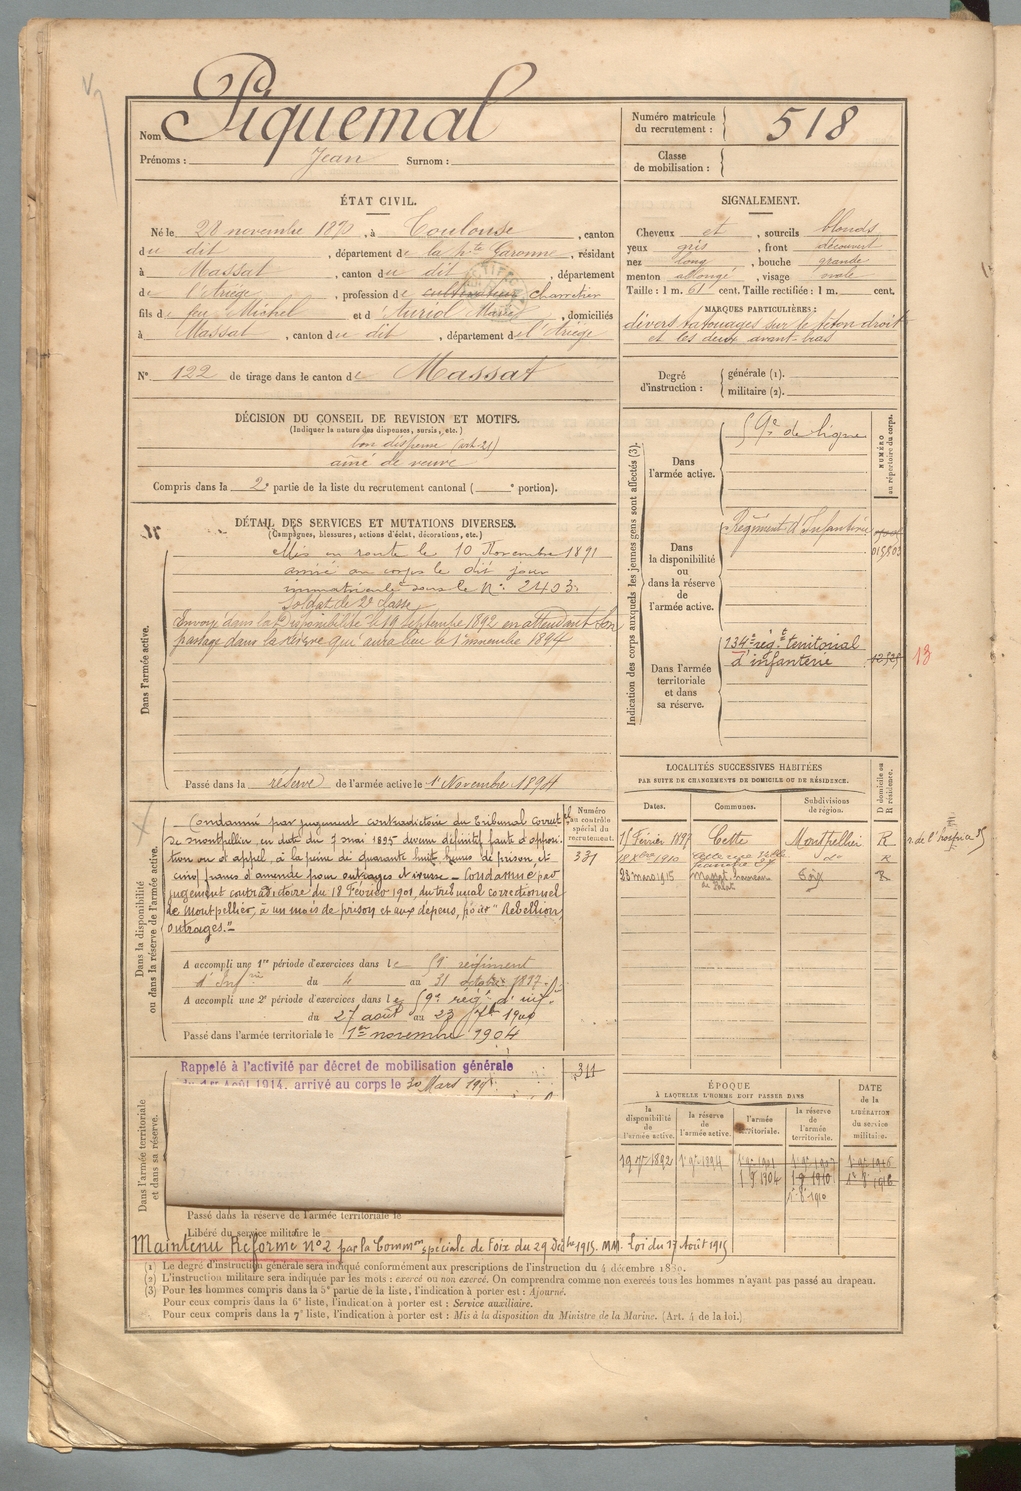 Nom : Piquemal
Prénoms : Jean Surnom :
Numéro matricule du recrutement : 518
Classe de mobilisation :
ÉTAT CIVIL.
Né le 28 novembre 1870, à Toulouse, canton
du dit, département de la Hte Garonne, résidant
à Massat, canton du dit, département
de l'Ariège, profession de cultivateur charretier
fils de feu Michel et d'Auriol Marie, domiciliés
à Massat, canton du dit, département de l'Ariège
N° 122 de tirage dans le canton de Massat
SIGNALEMENT.
Cheveux et, sourcils blonds
yeux gris, front découvert
nez long, bouche grande
menton allongé, visage ovale
Taille : 1 m. 61 cent. Taille rectifiée : 1 m. cent.
MARQUES PARTICULIÈRES :
divers tatouages sur le téton droit
et les deux avant-bras
Degré d'instruction : générale (1).
militaire (2).
DÉCISION DU CONSEIL DE REVISION ET MOTIFS.
(Indiquer la nature des dispenses, sursis, etc.)
bon dispensé (art-21)
aîné de veuve
Compris dans la 2e partie de la liste du recrutement cantonal ( e portion).
DÉTAIL DES SERVICES ET MUTATIONS DIVERSES.
(Campagnes, blessures, actions d'éclat, décorations, etc.)
Dans l'armée active.
Mis en route le 10 Novembre 1891
arrivé au corps le dit jour
immatriculé sous le N° 2403.
Soldat de 2e classe
Envoyé dans la Disponibilité le 19 Septembre 1892 en attendant son
passage dans la réserve qui aura lieu le 1 novembre 1894
Passé dans la réserve de l'armée active le 1er Novembre 1894
Indication des corps auxquels les jeunes gens sont affectés (3).
NUMÉRO au répertoire du corps.
Dans l'armée active.
59e de ligne
Dans la disponibilité ou dans la réserve de l'armée active.
Régiment d'Infanterie
015803
Dans l'armée territoriale et dans sa réserve.
134e rég.t territorial
d'infanterie
13
LOCALITÉS SUCCESSIVES HABITÉES
PAR SUITE DE CHANGEMENTS DE DOMICILE OU DE RÉSIDENCE.
D domicile ou R résidence.
Dates. Communes. Subdivisions de région.
15 Février 1897 Cette Montpellier R
1910 do R
28 mars 1915 Massat, hameau Foix R
Dans la disponibilité ou dans la réserve de l'armée active.
Numéro au contrôle spécial du recrutement.
331
Condamné par jugement contradictoire du Tribunal Correctel
de Montpellier, en date du 7 mai 1895 devenu définitif faute d'opposi-
tion ou d'appel, à la peine de quarante huit heures de prison, et
cinq francs d'amende pour outrages et ivresse - Condamné par
jugement contradictoire du 18 Février 1901, du tribunal correctionnel
de Montpellier, à un mois de prison et aux dépens, pour "Rebellion,
outrages."
A accompli une 1re période d'exercices dans le 59e régiment
d'Infrie du 4 au 31 octobre 1897.
A accompli une 2e période d'exercices dans le 59e rég.t d'inf.ie
du 27 août au 23 7bre 1900
Passé dans l'armée territoriale le 1er novembre 1904
Dans l'armée territoriale et dans sa réserve.
Rappelé à l'activité par décret de mobilisation générale
du 1er Août 1914, arrivé au corps le 30 Mars 1915
311
Passé dans la réserve de l'armée territoriale le
Libéré du service militaire le
Maintenu Réformé N°2 par la Common spéciale de Foix du 29 Décbre 1915. MM. Loi du 17 Août 1915
ÉPOQUE
À LAQUELLE L'HOMME DOIT PASSER DANS
DATE de la LIBÉRATION du service militaire.
la disponibilité de l'armée active. la réserve de l'armée active. l'armée territoriale. la réserve de l'armée territoriale.
19 7bre 1892 1er 9bre 1894
1 9 1904 1 9 1910
1er 8 1910
(1) Le degré d'instruction générale sera indiqué conformément aux prescriptions de l'instruction du 4 décembre 1889.
(2) L'instruction militaire sera indiquée par les mots : exercé ou non exercé. On comprendra comme non exercés tous les hommes n'ayant pas passé au drapeau.
(3) Pour les hommes compris dans la 5e partie de la liste, l'indication à porter est : Ajourné.
Pour ceux compris dans la 6e liste, l'indication à porter est : Service auxiliaire.
Pour ceux compris dans la 7e liste, l'indication à porter est : Mis à la disposition du Ministre de la Marine. (Art. 4 de la loi.)